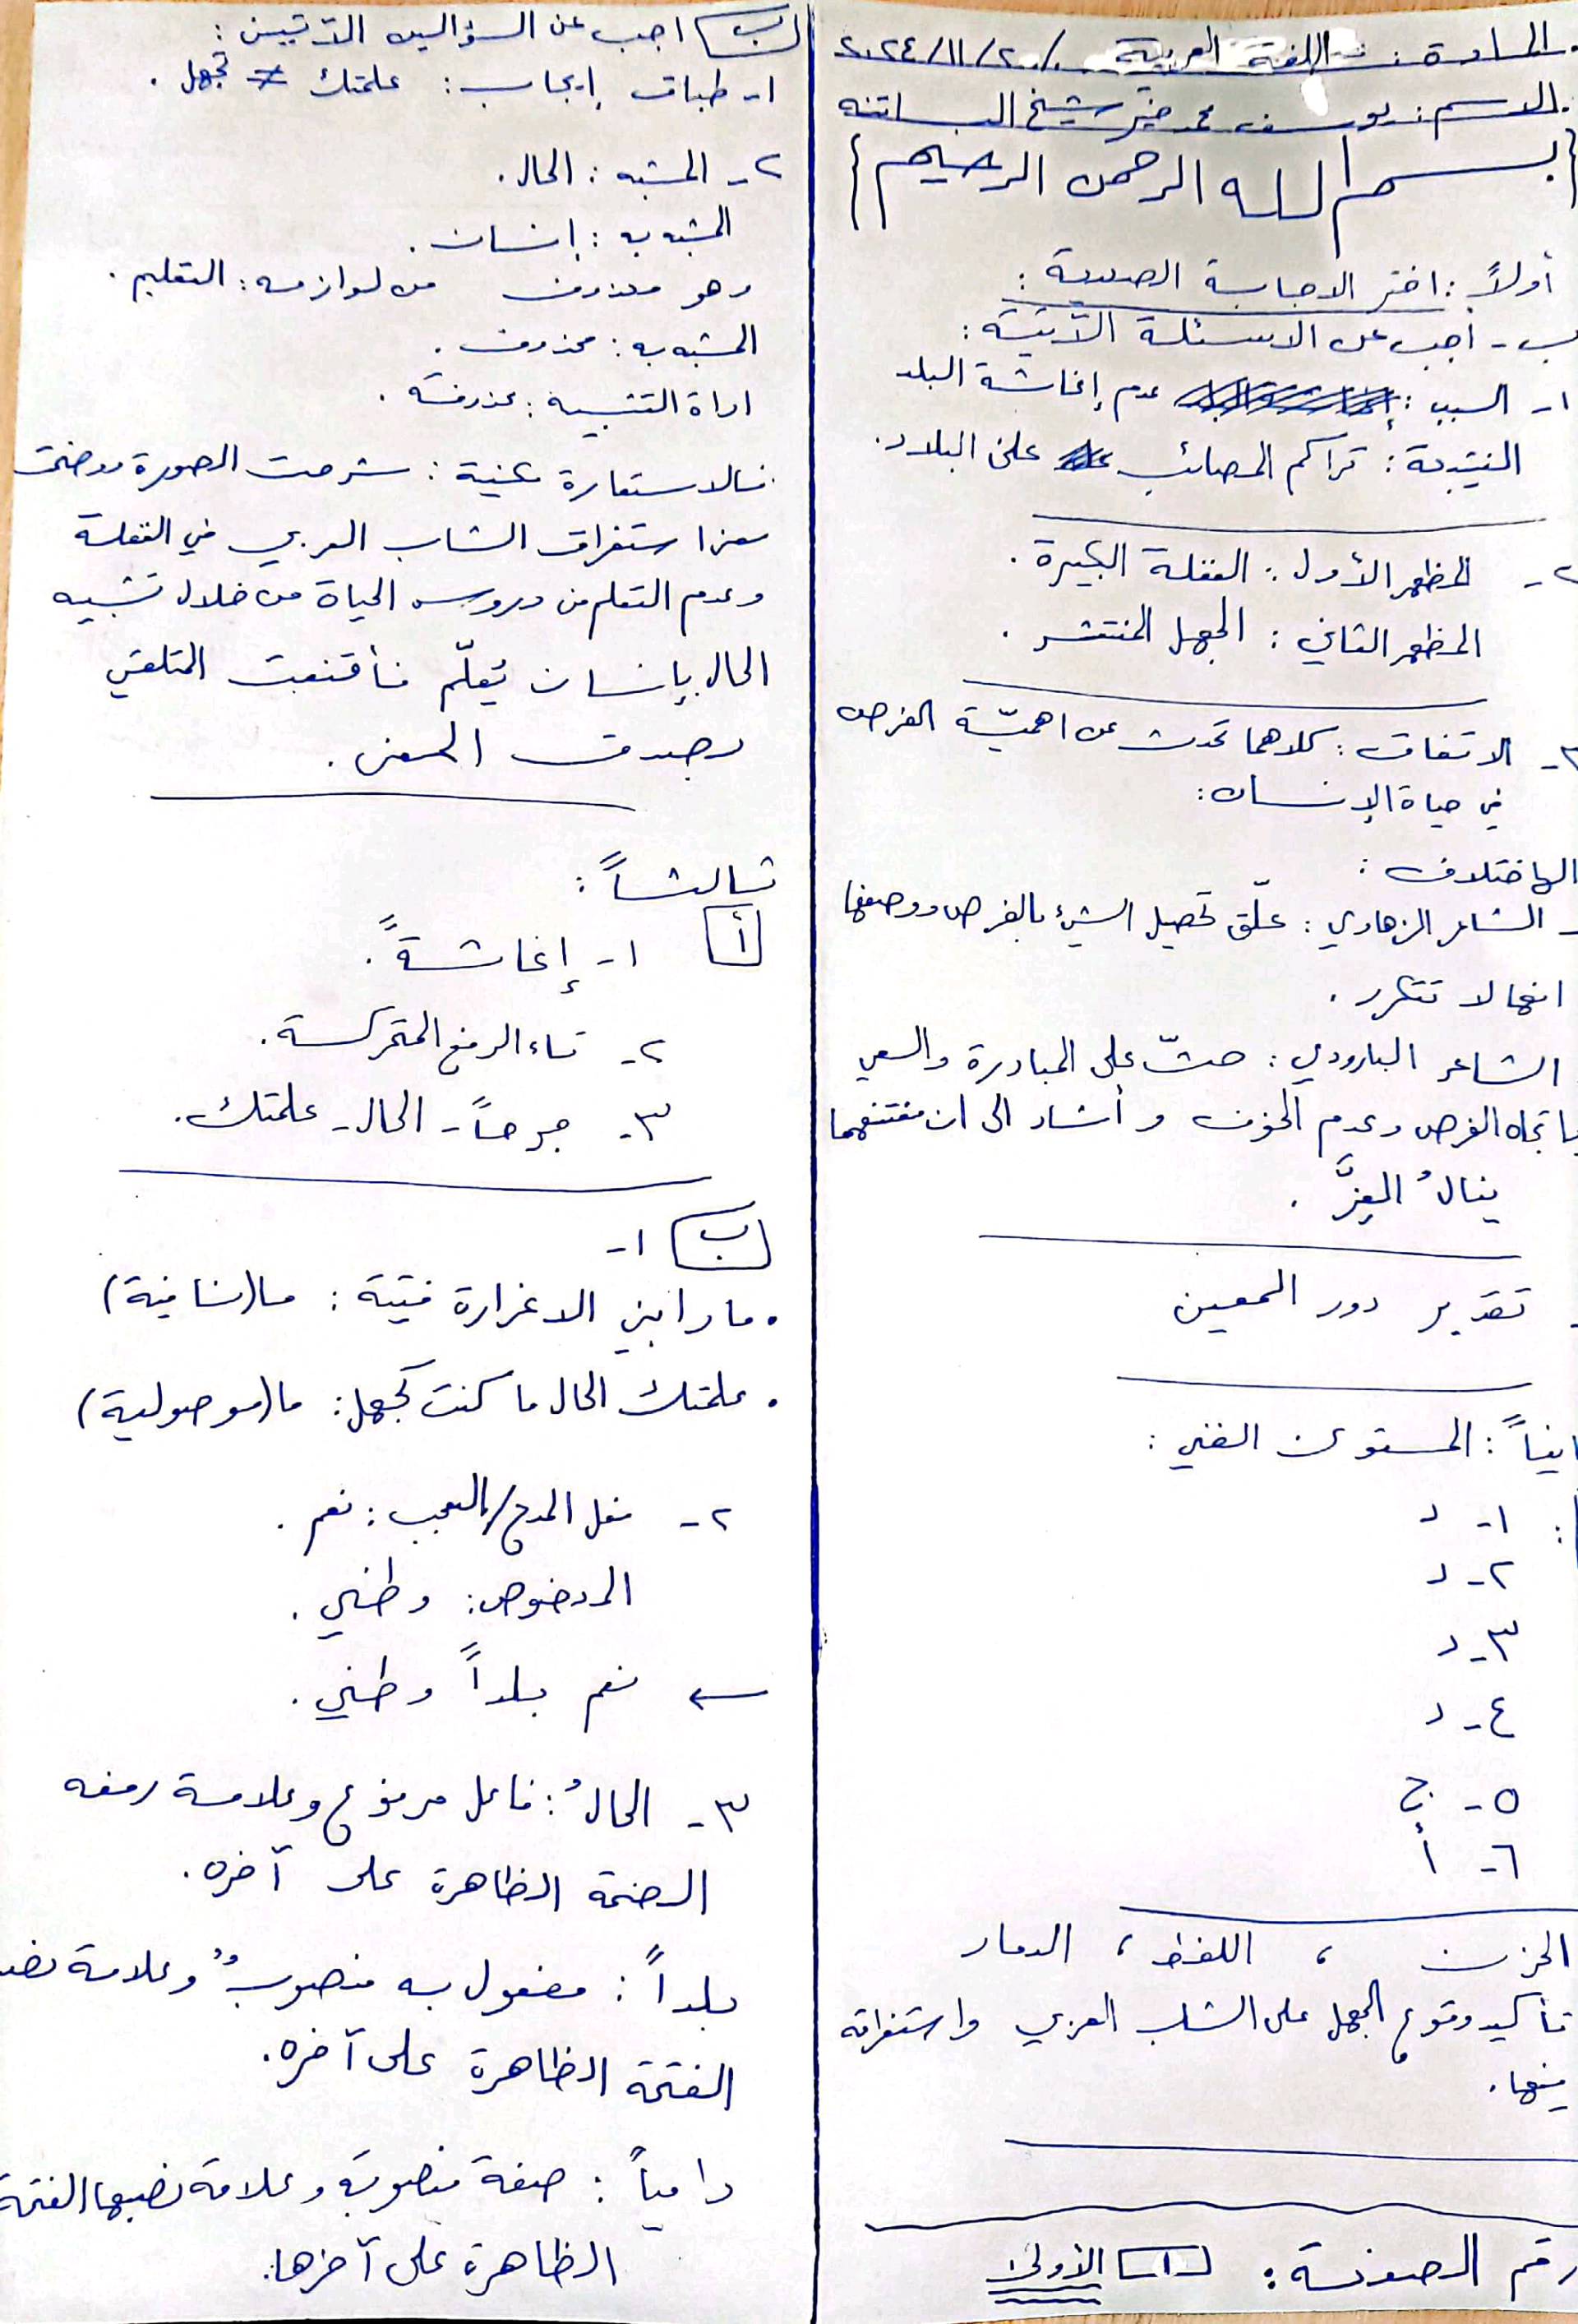 المادة: اللغة العربية ٢٠٢٤/١١/٢٠
الاسم: يوسف محمد خير شيخ البساتنه
{بسم الله الرحمن الرحيم}
أولاً: اختر الاجابة الصحيحة:
ب- أجب عن الاسئلة الآتية:
١- السبب: عدم إغاثة البلد
النتيجة: تراكم المصائب على البلاد.
٢- المظهر الأول: الغفلة الكبيرة.
المظهر الثاني: الجهل المنتشر.
٣- الاتفاق: كلاهما تحدث عن اهميّة الفرص
في حياة الإنسان:
الاختلاف:
- الشاعر الزهاوي: علّق تحصيل الشيء بالفرص ووصفها
انها لا تتكرر.
الشاعر البارودي: حثّ على المبادرة والسعي
باتجاه الفرص وعدم الخوف وأشار الى ان مغتنمها
ينالُ العِزَّ.
- تقدير دور المعين
ثانياً: المستوى الفني:
١- د
٢- د
٣- د
٤- د
٥- ج
٦- أ
الحزن ، اللفظ ، الدمار
تأكيد وقوع الجهل على الشاب العربي واستغراقه
فيها.
رقم الصفحة: ١ الأولى
ب اجب عن السؤالين الآتيين:
١- طباق إيجاب: علمتك ≠ تجهل.
٢- المشبه: الحال.
المشبه به: إنسان.
وهو محذوف من لوازمه: التعليم.
المشبه به: محذوف.
اداة التشبيه: محذوفة.
فالاستعارة مكنية: شرحت الصورة ووضحت
معنى استغراق الشاب العربي في الغفلة
وعدم التعلم من دروس الحياة من خلال تشبيه
الحال بإنسان يُعلّم فأقنعت المتلقي
بصدق المعنى.
ثالثاً:
أ ١- إغاثةً.
٢- تاء الرفع المتحركة.
٣- جرحاً - الحال - علمتك.
ب ١-
• ما رابني الا غرارة فتية: ما (نافية)
• علمتك الحال ما كنت تجهل: ما (موصولية)
٢- فعل المدح/التعجب: نعم.
المخصوص: وطني.
← نعم بلداً وطني.
٣- الحالُ: فاعل مرفوع وعلامة رفعه
الضمة الظاهرة على آخره.
بلداً: مفعول به منصوبٌ وعلامة نصبه
الفتحة الظاهرة على آخره.
دامياً: صفة منصوبة وعلامة نصبها الفتحة
الظاهرة على آخرها.